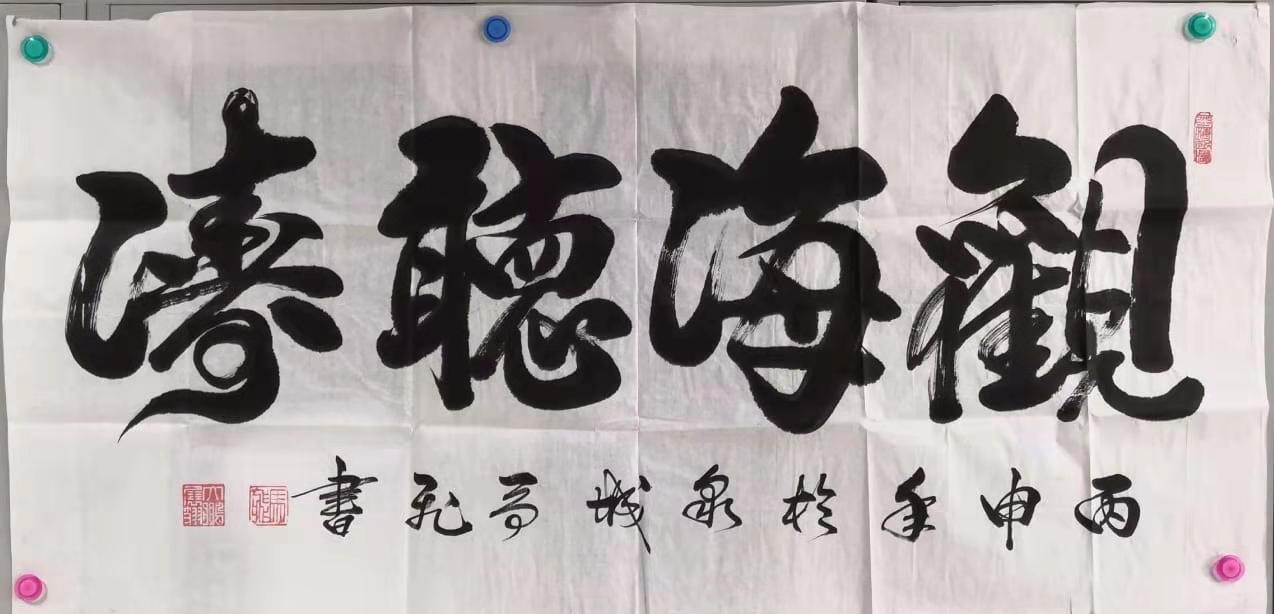 觀海聽濤
丙申年於泉城馬飛書